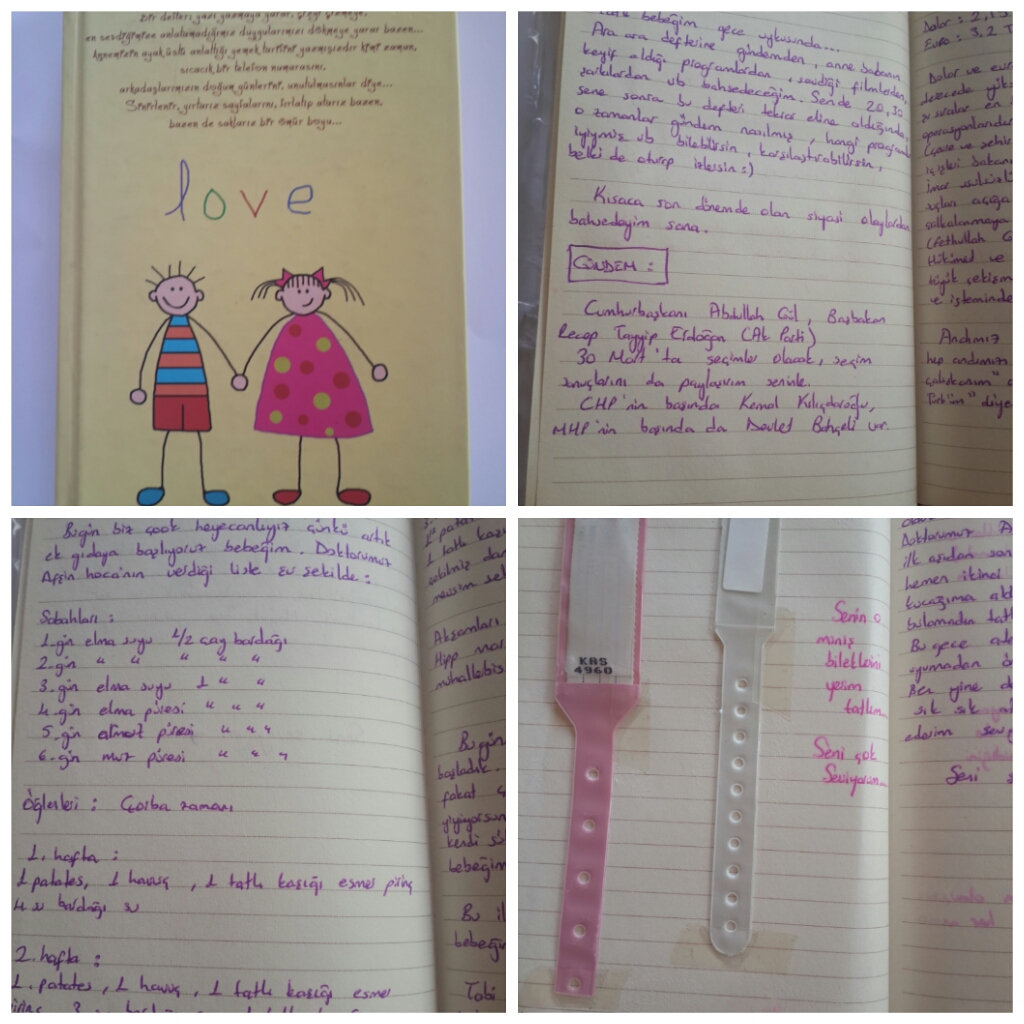 Bir defteri yazı yazmaya yarar, çizgi çizmeye,
en sevdiğimize anlatamadığımız duygularımızı dökmeye yarar bazen...
Annemizin ayak üstü anlattığı yemek tarifini yazmışızdır kimi zaman,
sıcacık bir telefon numarasını,
arkadaşlarımızın doğum günlerini, unutulmasınlar diye...
Sinirlenir, yırtarız sayfalarını, fırlatıp atarız bazen,
bazen de saklarız bir ömür boyu...
love
bebeğim gece uykusunda...
Ara ara defterine gündemden, anne babanın
keyif aldığı programlardan, sevdiği filmlerden,
şarkılardan vb bahsedeceğim. Sen de 20, 30
sene sonra bu defteri tekrar eline aldığında,
o zamanlar gündem nasılmış, hangi
iyiymiş vb bilebilirsin, karşılaştırabilirsin,
belki de oturup izlersin :)
Kısaca son dönemde olan siyasi olaylardan
bahsedeyim sana.
GÜNDEM :
Cumhurbaşkanı Abdullah Gül, Başbakan
Recep Tayyip Erdoğan (Ak Parti)
30 Mart'ta seçimler olacak, seçim
sonuçlarını da paylaşırım seninle.
CHP'nin başında Kemal Kılıçdaroğlu,
MHP'nin başında da Devlet Bahçeli var.
Dolar : 2,
Euro : 3,2
Dolar ve
derecede
şu sıralar en
içişleri
(Fethullah G
Hükümet ve
ve isteminde
Andımız
hep andımız
çalışkanım"
Türküm" diye
Bugün biz çook heyecanlıyız çünkü artık
ek gıdaya başlıyoruz bebeğim. Doktorumuz
Afşin hoca'nın verdiği liste şu şekilde :
Sabahları :
1-gün elma suyu 1/2 çay bardağı
2-gün " " " " "
3-gün elma suyu 1 " "
4-gün elma püresi " " "
5-gün armut püresi " " "
6-gün muz püresi " " "
Öğlenleri : Çorba zamanı
1. hafta :
1 patates, 1 havuç, 1 tatlı kaşığı esmer pirinç
4 su bardağı su
2. hafta :
1. patates, 1 havuç, 1 tatlı kaşığı esmer
1 patat
1 tatlı
Akşamları
Hipp
muhallebis
Bugün
başladık.
fakat
yiyiyorsun
kendi
bebeğim
Bu
bebeğim
Tabi
KBS
4960
Senin o
miniş
bileklerini
yerim
tatlım
Seni çok
Seviyorum...
Doktorumuz A
ilk aşıdan son
hemen ikinci
kucağıma
Bu gece
uyumadan
Ben yine
sık sık
ederim
Seni